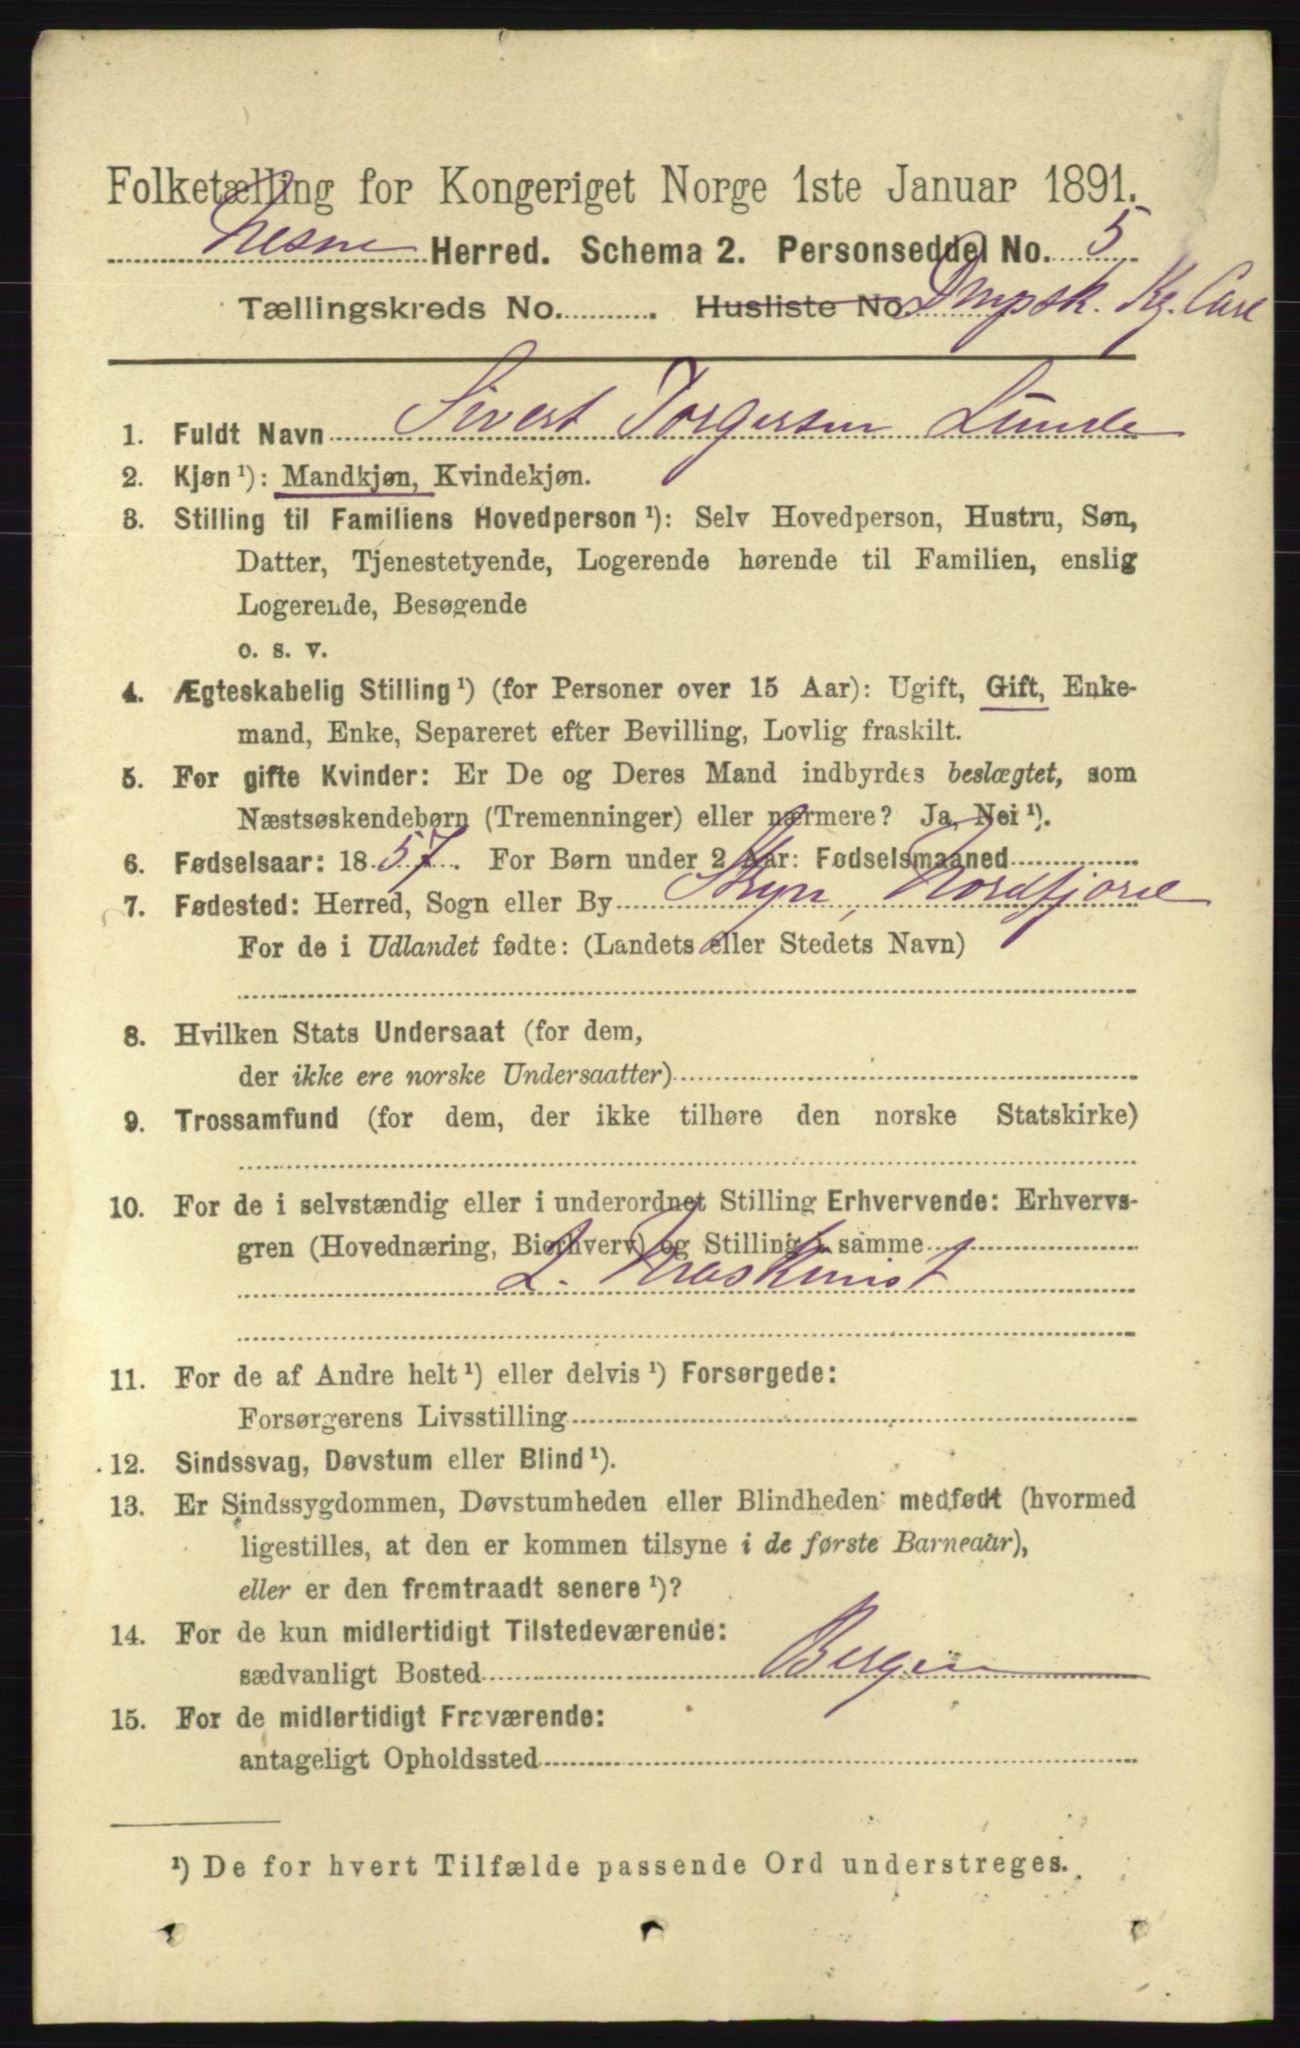 Folketælling for Kongeriget Norge 1ste Januar 1891.
Nesne Herred. Schema 2. Personseddel No. 5
Tællingskreds No. . Husliste No. Dmpsk. Kg. Carl
1. Fuldt Navn Sivert Torgersen Lunde
2. Kjøn ¹): Mandkjøn, Kvindekjøn.
3. Stilling til Familiens Hovedperson ¹): Selv Hovedperson, Hustru, Søn,
Datter, Tjenestetyende, Logerende hørende til Familien, enslig
Logerende, Besøgende
o. s. v.
4. Ægteskabelig Stilling ¹) (for Personer over 15 Aar): Ugift, Gift, Enke-
mand, Enke, Separeret efter Bevilling, Lovlig fraskilt.
5. For gifte Kvinder: Er De og Deres Mand indbyrdes beslægtet, som
Næstsøskendebørn (Tremenninger) eller nærmere? Ja, Nei ¹).
6. Fødselsaar: 1857. For Børn under 2 Aar: Fødselsmaaned
7. Fødested: Herred, Sogn eller By Stryn, Nordfjord
For de i Udlandet fødte: (Landets eller Stedets Navn)
8. Hvilken Stats Undersaat (for dem,
der ikke ere norske Undersaatter)
9. Trossamfund (for dem, der ikke tilhøre den norske Statskirke)
10. For de i selvstændig eller i underordnet Stilling Erhvervende: Erhvervs-
gren (Hovednæring, Bierhverv) og Stilling i samme
2. Maskinist
11. For de af Andre helt ¹) eller delvis ¹) Forsørgede:
Forsørgerens Livsstilling
12. Sindssvag, Døvstum eller Blind ¹).
13. Er Sindssygdommen, Døvstumheden eller Blindheden medfødt (hvormed
ligestilles, at den er kommen tilsyne i de første Barneaar),
eller er den fremtraadt senere ¹)?
14. For de kun midlertidigt Tilstedeværende:
sædvanligt Bosted Bergen
15. For de midlertidigt Fraværende:
antageligt Opholdssted
¹) De for hvert Tilfælde passende Ord understreges.